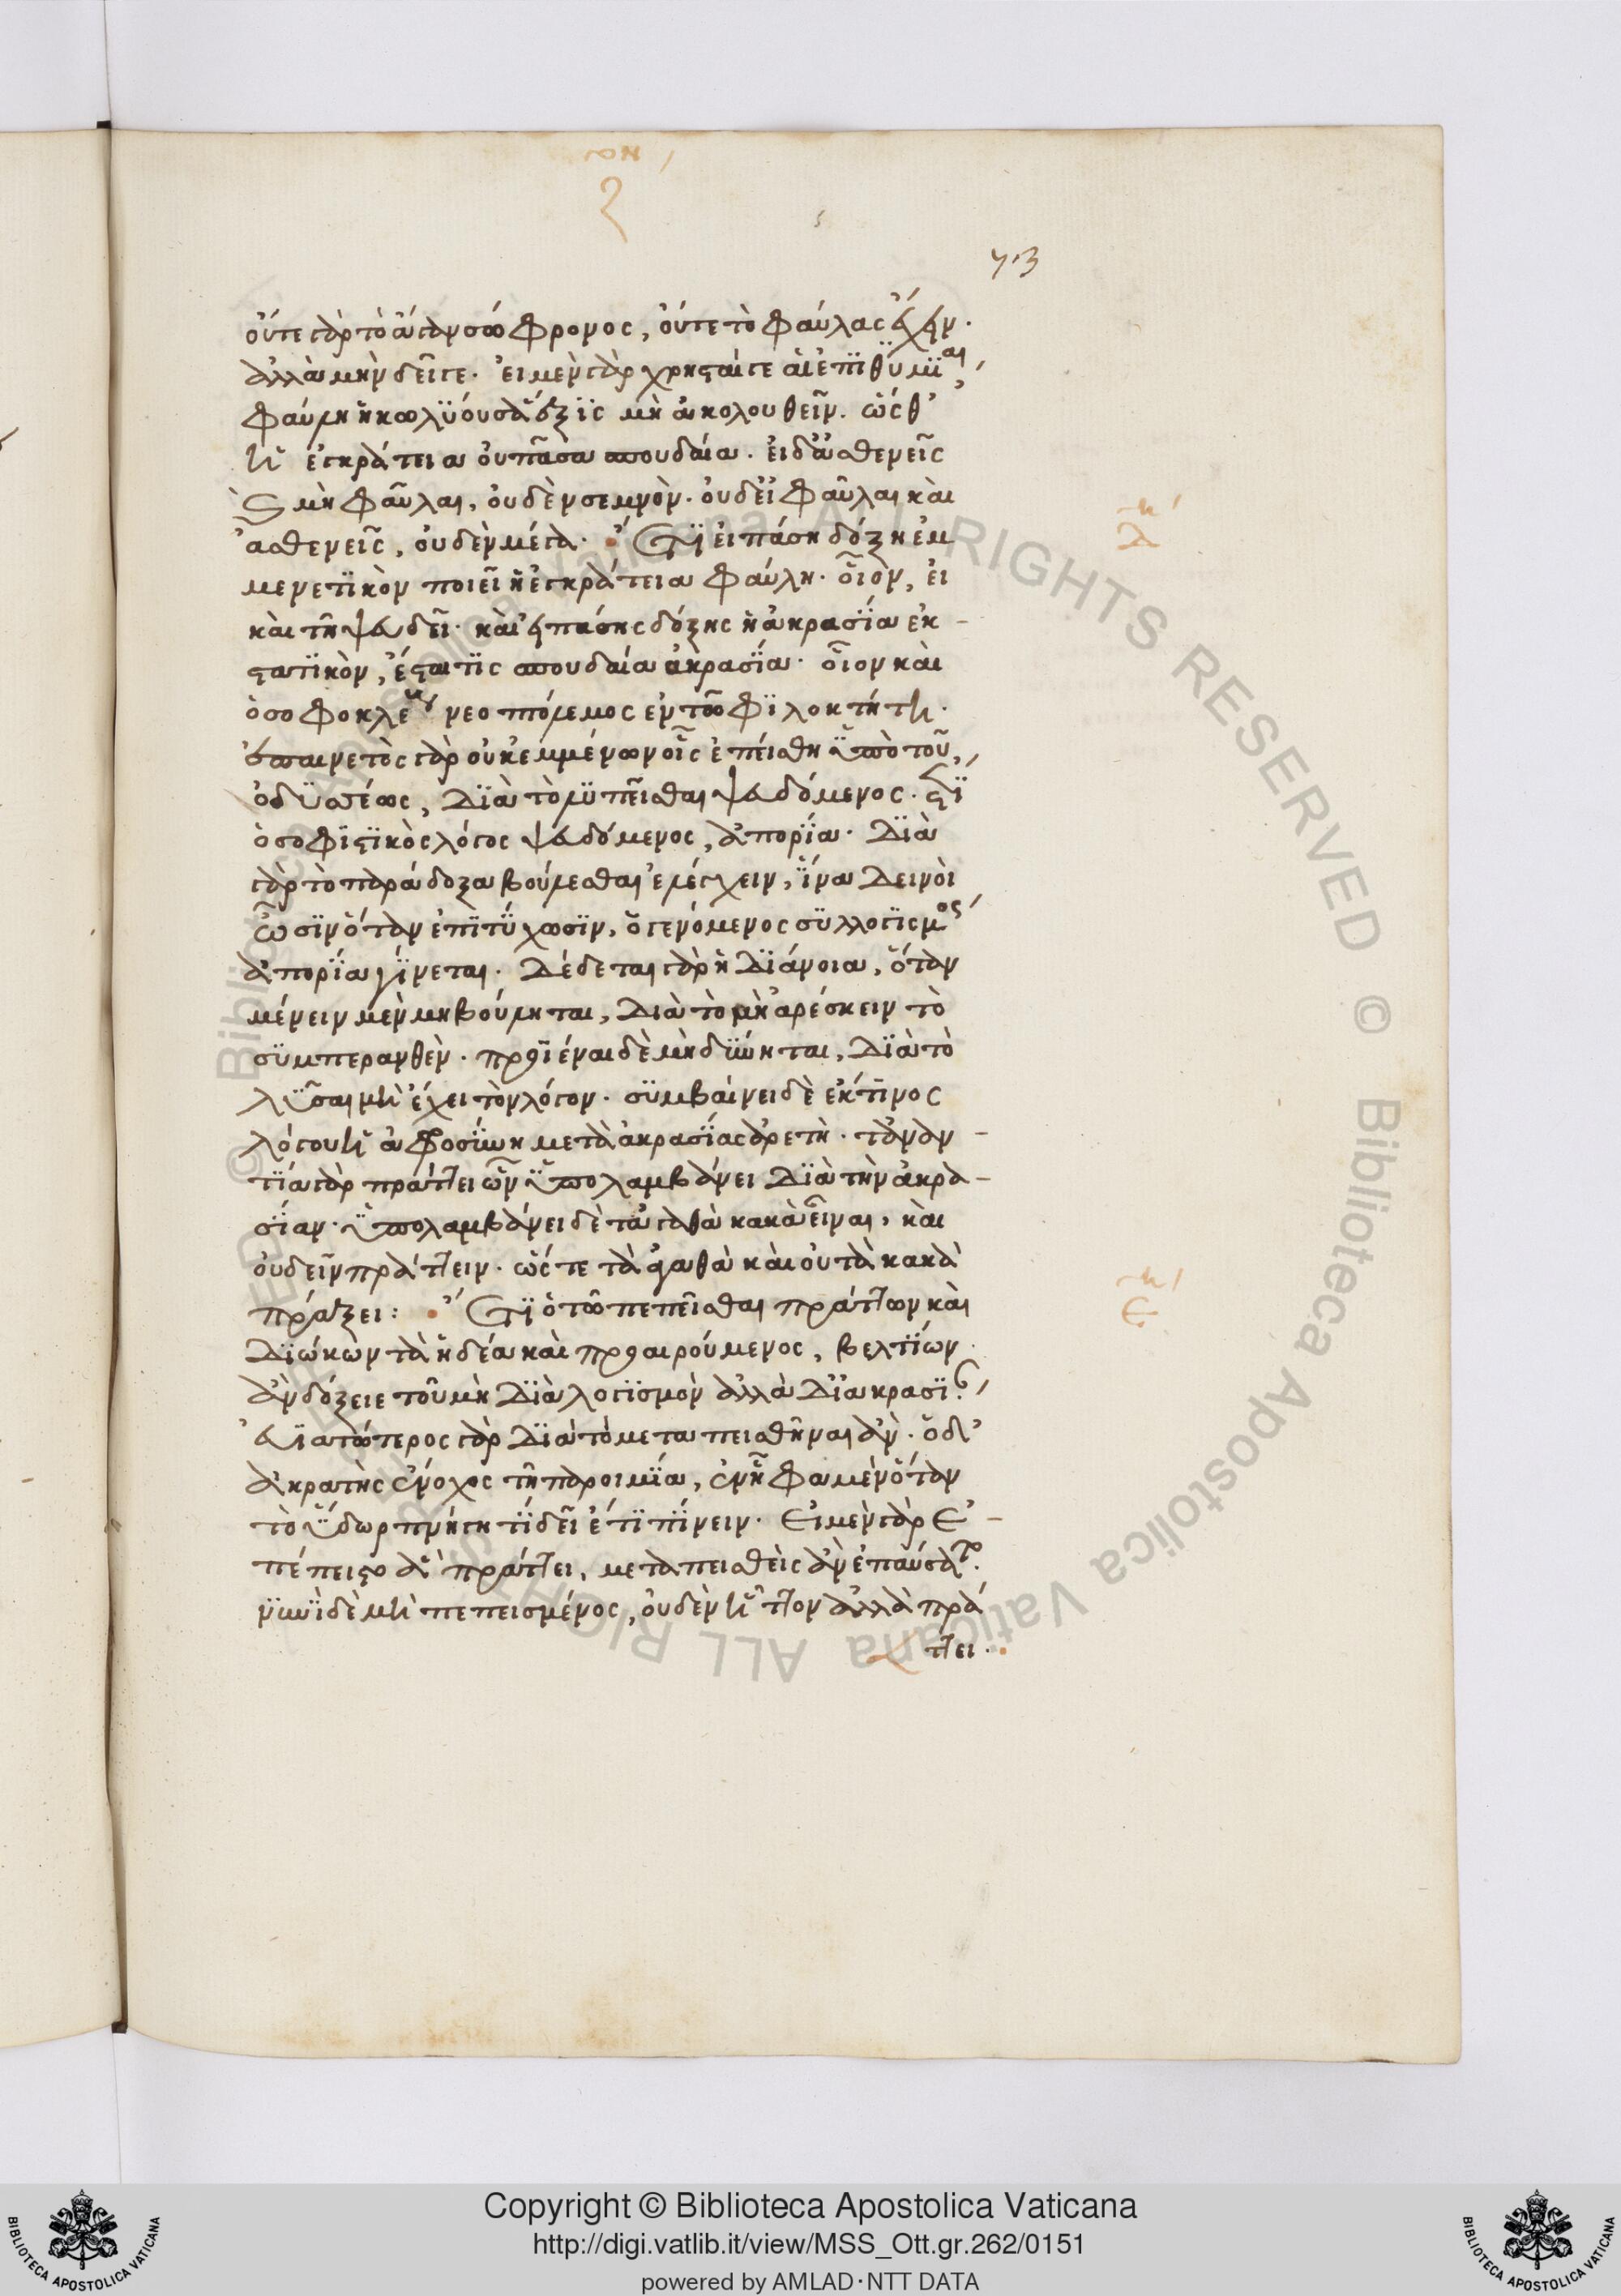 ων
ζ
73
οὔτε γὰρ τὸ ἄγαν σώφρονος, οὔτε τὸ φαύλας ἔχειν.
ἀλλὰ μὴν δεῖ γε. εἰ μὲν γὰρ χρησταί γε αἱ ἐπιθυμίαι,
φαύλη ἡ κωλύουσα ἕξις μὴ ἀκολουθεῖν. ὥσθ'
ἡ ἐγκράτεια οὐ πᾶσα σπουδαία. εἰ δ' ἀσθενεῖς
καὶ μὴ φαῦλαι, οὐδὲν σεμνὸν. οὐδ' εἰ φαῦλαι καὶ
ἀσθενεῖς, οὐδὲν μέγα. ἔτι εἰ πάση δόξη ἐμ
μενετικὸν ποιεῖ ἡ ἐγκράτεια φαύλη. οἷον, εἰ
καὶ τῆ ψευδεῖ. καὶ εἰ πάσης δόξης ἡ ἀκρασία ἐκ-
στατικὸν, ἔσται τὶς σπουδαία ἀκρασία. οἷον καὶ
ὁ σοφοκλέους νεοπτόλεμος ἐν τῶ φιλοκτήτη.
ἐπαινετὸς γὰρ οὐκ ἐμμένων οἷς ἐπείσθη ὑπὸ τοῦ
ὀδυσσέως, διὰ τὸ λυπεῖσθαι ψευδόμενος. ἔτι
ὁ σοφιστικὸς λόγος ψευδόμενος, ἀπορία. διὰ
γὰρ τὸ παράδοξα βούλεσθαι ἐλέγχειν, ἵνα δεινοὶ
ὦσιν ὅταν ἐπιτύχωσιν, ὁ γενόμενος συλλογισμὸς
ἀπορία γίνεται. δέδεται γὰρ ἡ διάνοια, ὅταν
μένειν μὲν μὴ βούληται, διὰ τὸ μὴ ἀρέσκειν τὸ
συμπερανθὲν. προϊέναι δὲ μὴ δύνηται, διὰ τὸ
λῦσαι μὴ ἔχει τὸν λόγον. συμβαίνει δὲ ἐκ τινος
λόγου ἡ ἀφροσύνη μετὰ ἀκρασίας ἀρετὴ. τἀναν-
τία γὰρ πράττει ὧν ὑπολαμβάνει διὰ τὴν ἀκρα-
σίαν. ὑπολαμβάνει δὲ τἀγαθὰ κακὰ εἶναι, καὶ
οὐ δεῖν πράττειν. ὥστε τὰ ἀγαθὰ καὶ οὐ τὰ κακὰ
πράξει: ἔτι ὁ τῶ πεπεῖσθαι πράττων καὶ
διώκων τὰ ἡδέα καὶ προαιρούμενος, βελτίων
ἂν δόξειε τοῦ μὴ διὰ λογισμὸν ἀλλὰ δι' ἀκρασίαν.
εὐιατώτερος γὰρ διὰ τὸ μεταπεισθῆναι ἂν. ὁ δ'
ἀκρατὴς ἔνοχος τῆ παροιμία, ἐν ᾗ φαμὲν ὅταν
τὸ ὕδωρ πνίγη τί δεῖ ἐπιπίνειν. εἰ μὲν γὰρ ἐ-
πέπειστο ἃ πράττει, μεταπεισθεὶς ἂν ἐπαύσατο.
νυνὶ δὲ μὴ πεπεισμένος, οὐδὲν ἧττον ἀλλὰ πρά
ττει.
κδ
κε
Copyright © Biblioteca Apostolica Vaticana
http://digi.vatlib.it/view/MSS_Ott.gr.262/0151
powered by AMLAD·NTT DATA
BIBLIOTECA APOSTOLICA VATICANA
BIBLIOTECA APOSTOLICA VATICANA